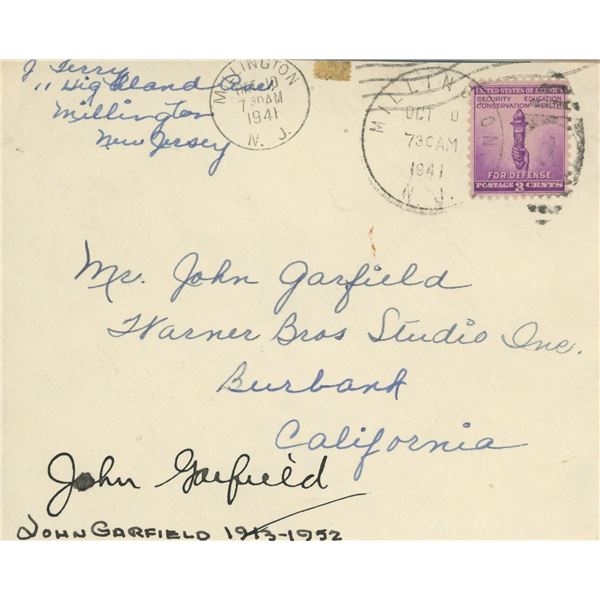 J Terry
11 Highland Ave
Millington
New Jersey
MILLINGTON
OCT 10
7 30 AM
1941
N. J.
MILLINGTON
OCT 0
730 AM
1941
N. J.
UNITED STATES OF AMERICA
SECURITY EDUCATION
CONSERVATION HEALTH
FOR DEFENSE
POSTAGE 3 CENTS
Mr. John Garfield
Warner Bros Studio Inc.
Burbank
California
John Garfield
JOHN GARFIELD 1913-1952